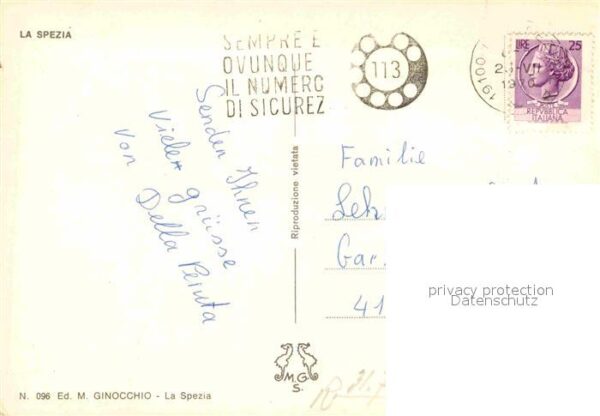 LA SPEZIA
SEMPRE E
OVUNQUE
IL NUMERO
DI SICUREZ
113
LIRE 25
REPVBBLICA
ITALIANA
Senden Ihnen
viele grüsse
von
Della Peruta
Riproduzione vietata
Familie
Leh
Gar.
41
privacy protection
Datenschutz
M.G.
S.
N. 096 Ed. M. GINOCCHIO - La Spezia